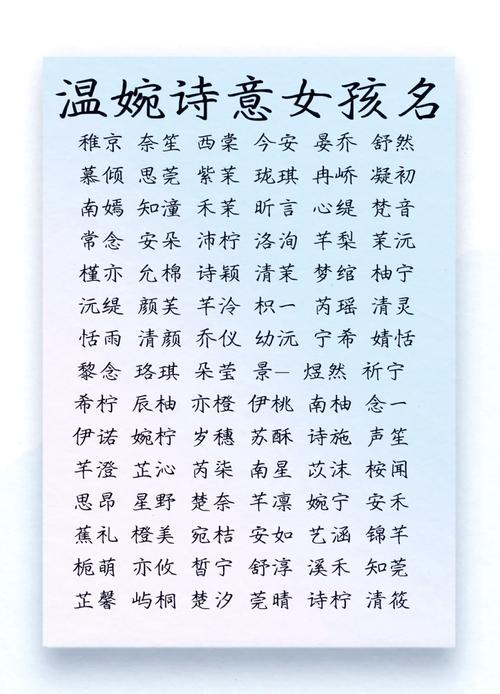 温婉诗意女孩名
稚京 奈笙 西棠 今安 晏乔 舒然
慕倾 思莞 紫茉 珑琪 冉峤 凝初
南嫣 知潼 禾茉 昕言 心缇 梵音
常念 安朵 沛柠 洛洵 芊梨 茉沅
槿亦 允棉 诗颖 清茉 梦绾 柚宁
沅缇 颜芙 芊泠 枳一 芮瑶 清灵
恬雨 清颜 乔仪 幼沅 宁希 婧恬
黎念 珞琪 朵莹 景一 煜然 祈宁
希柠 辰柚 亦橙 伊桃 南柚 念一
伊诺 婉柠 岁穗 苏酥 诗施 声笙
芊澄 芷沁 芮柒 南星 苡沫 桉闻
思昂 星野 楚奈 芊凛 婉宁 安禾
蕉礼 橙美 宛桔 安如 艺涵 锦芊
栀萌 亦攸 皙宁 舒淳 溪禾 知莞
芷馨 屿桐 楚汐 莞晴 诗柠 清筱